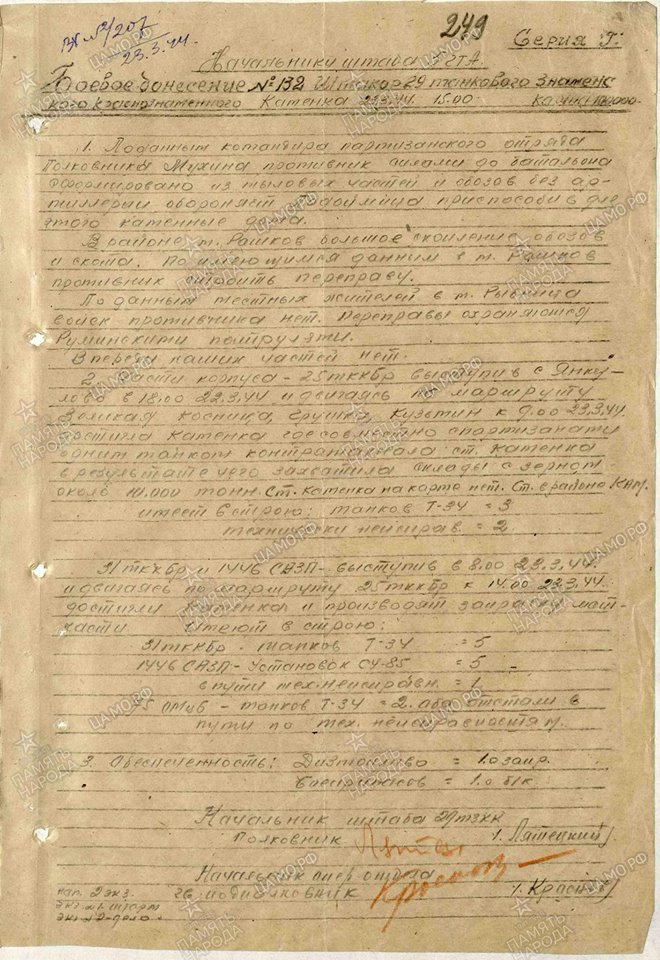 249
Серия "Г"
вх №4/207
23.3.44.
Начальнику штаба 5 гТА
Боевое донесение №132 Штакор 29 танкового Знаменс
кого Краснознаменного Катенка 23.3.44 15.00
1. По данным командира партизанского отряда
Полковника Мухина противник силами до батальона
сформировано из тыловых частей и обозов без ар-
тиллерии обороняет приспособив для
этого каменные дома.
В районе м. Рашков большое скопление обозов
и скота. По имеющимся данным в м. Рашков
противник строить переправу.
По данным местных жителей в м. Рыбница
войск противника нет. Переправы охраняются
Румынскими патрулями.
Впереди наших частей нет.
2. Части корпуса - 25 ткКбр выступив с Янку-
лова в 18.00 22.3.44 и двигаясь по маршруту
Великая Косница, Грушка, Кузьмин к 9.00 23.3.44
достигла Катенка где совместно с партизанами
одним танком контратаковала ст. Катенка
в результате чего захватила склады с зерном
около 10.000 тонн. Ст. Катенка на карте нет. Ст. в районе
имеет в строю: танков Т-34 = 3
технически неисправ. = 2
31 ткКбр и 1446 САЗП - выступив в 8.00 23.3.44.
и двигаясь по маршруту 25 ткКбр к 14.00 23.3.44
достигли Катенка и производят заправку мат-
части. Имеют в строю:
31 ткКбр - танков Т-34 = 5
1446 САЗП - Установок СУ-85 = 5
в пути тех. неисправн. = 1
75 омцб - танков Т-34 = 2. оба отстали в
пути по тех. неисправностям.
3. Обеспеченность: Дизтопливо = 1.0 запр.
Боеприпасов = 1.0 б/к.
Начальник штаба 29 тЗКК
Полковник /. Ляшецкий /
Начальник опер отдела
подполковник /. Краснов /
нап. 2 экз.
экз №1-штарм
экз №2-дело
ПАМЯТЬ НАРОДА
ЦАМО.РФ